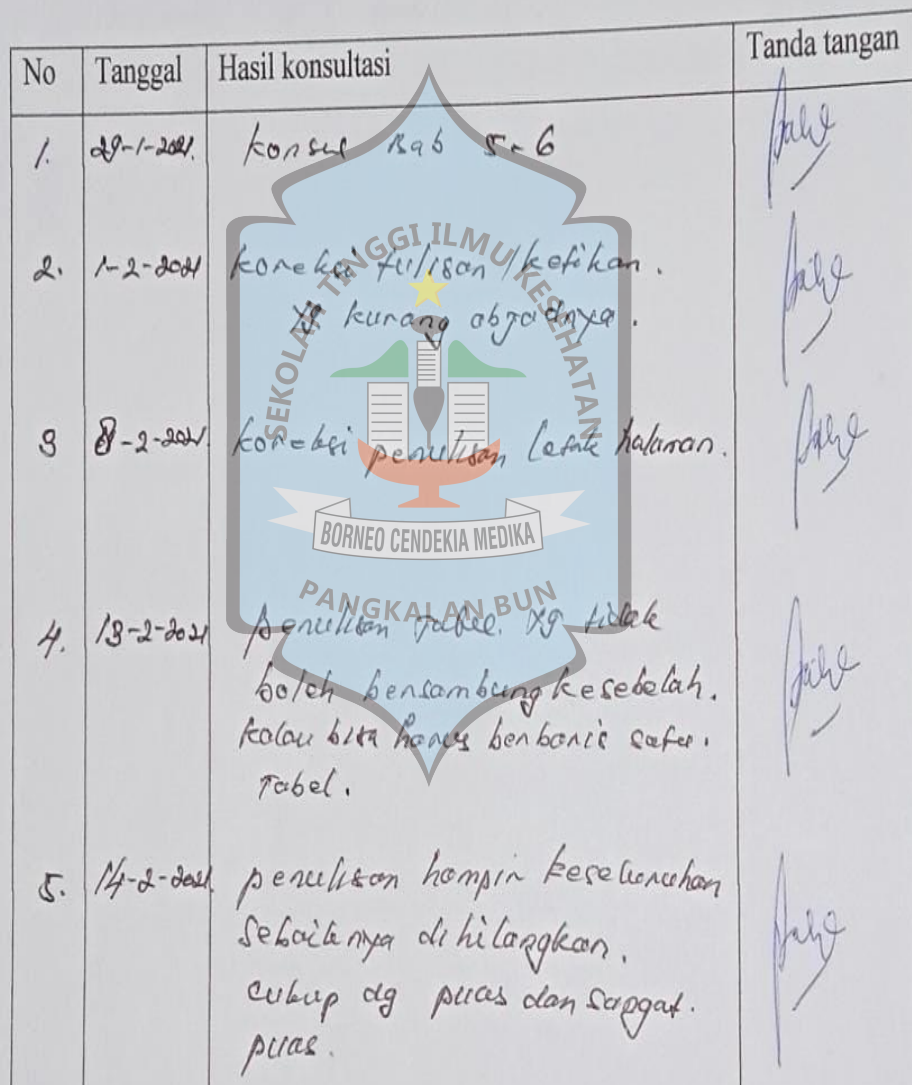 No Tanggal Hasil konsultasi Tanda tangan
1. 29-1-2021. konsul Bab 5-6
2. 1-2-2021 koreksi tulisan/ketikan.
yg kurang abjadnya.
3 8-2-2021 koreksi penulisan letak halaman.
4. 13-2-2021 penulisan Tabel. yg tidak
boleh bersambung kesebelah.
kalau bisa harus berbaris satu.
Tabel.
5. 14-2-2021 penulisan hampir keseluruhan
sebaiknya dihilangkan.
cukup dg puas dan sangat.
puas.
SEKOLAH TINGGI ILMU KESEHATAN
BORNEO CENDEKIA MEDIKA
PANGKALAN BUN